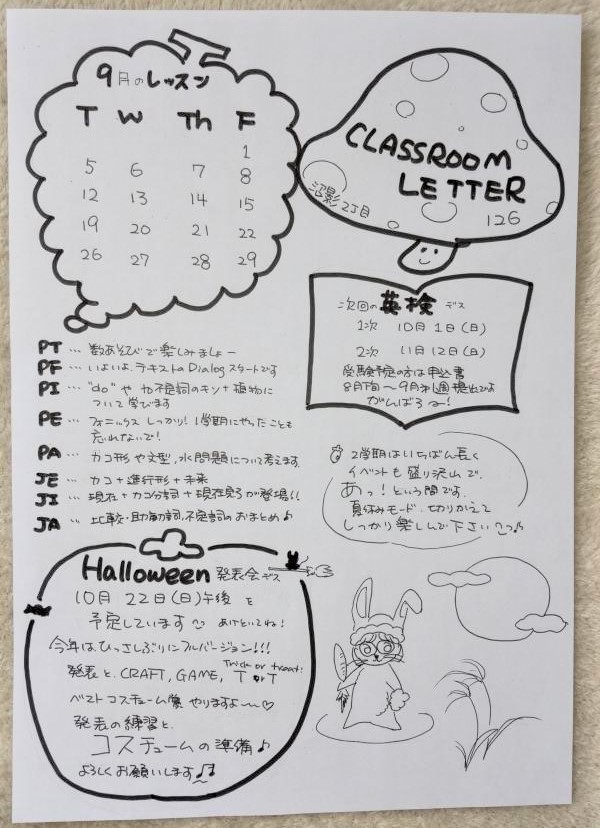 9月のレッスン
T W Th F
1
5 6 7 8
12 13 14 15
19 20 21 22
26 27 28 29
CLASSROOM
LETTER
沼影2丁目
126
次回の英検デス
1次 10月1日(日)
2次 11月12日(日)
受験予定の方は申込書
8月下旬〜9月第1週提出でよ
がんばろー!
PT … 数あそびで楽しみましょー
PF … いよいよ、テキストのDialogスタートです
PI … "do"や to不定詞のキソ+植物に
ついて学びます
PE … フォニックスしっかり! 1学期にやったことも
忘れないで!
PA … カコ形や文型,水問題について考えます
JE … カコ+進行形+未来
JI … 現在+カコ分詞+現在完了が登場!!
JA … 比較・助動詞,不定詞のおまとめ♪
2学期はいちばん長く
イベントも盛り沢山で、
あっ!という間です。
夏休みモード、切りかえて
しっかり楽しんで下さい
Halloween 発表会デス
10月22日(日)午後を
予定しています あけといてね!
今年は、ひっさしぶりにフルバージョン!!!
Trick or treat!
発表と、CRAFT, GAME, T or T
ベストコスチューム賞 やりますよ〜♡
発表の練習と、
コスチュームの準備♪
よろしくお願いします♪